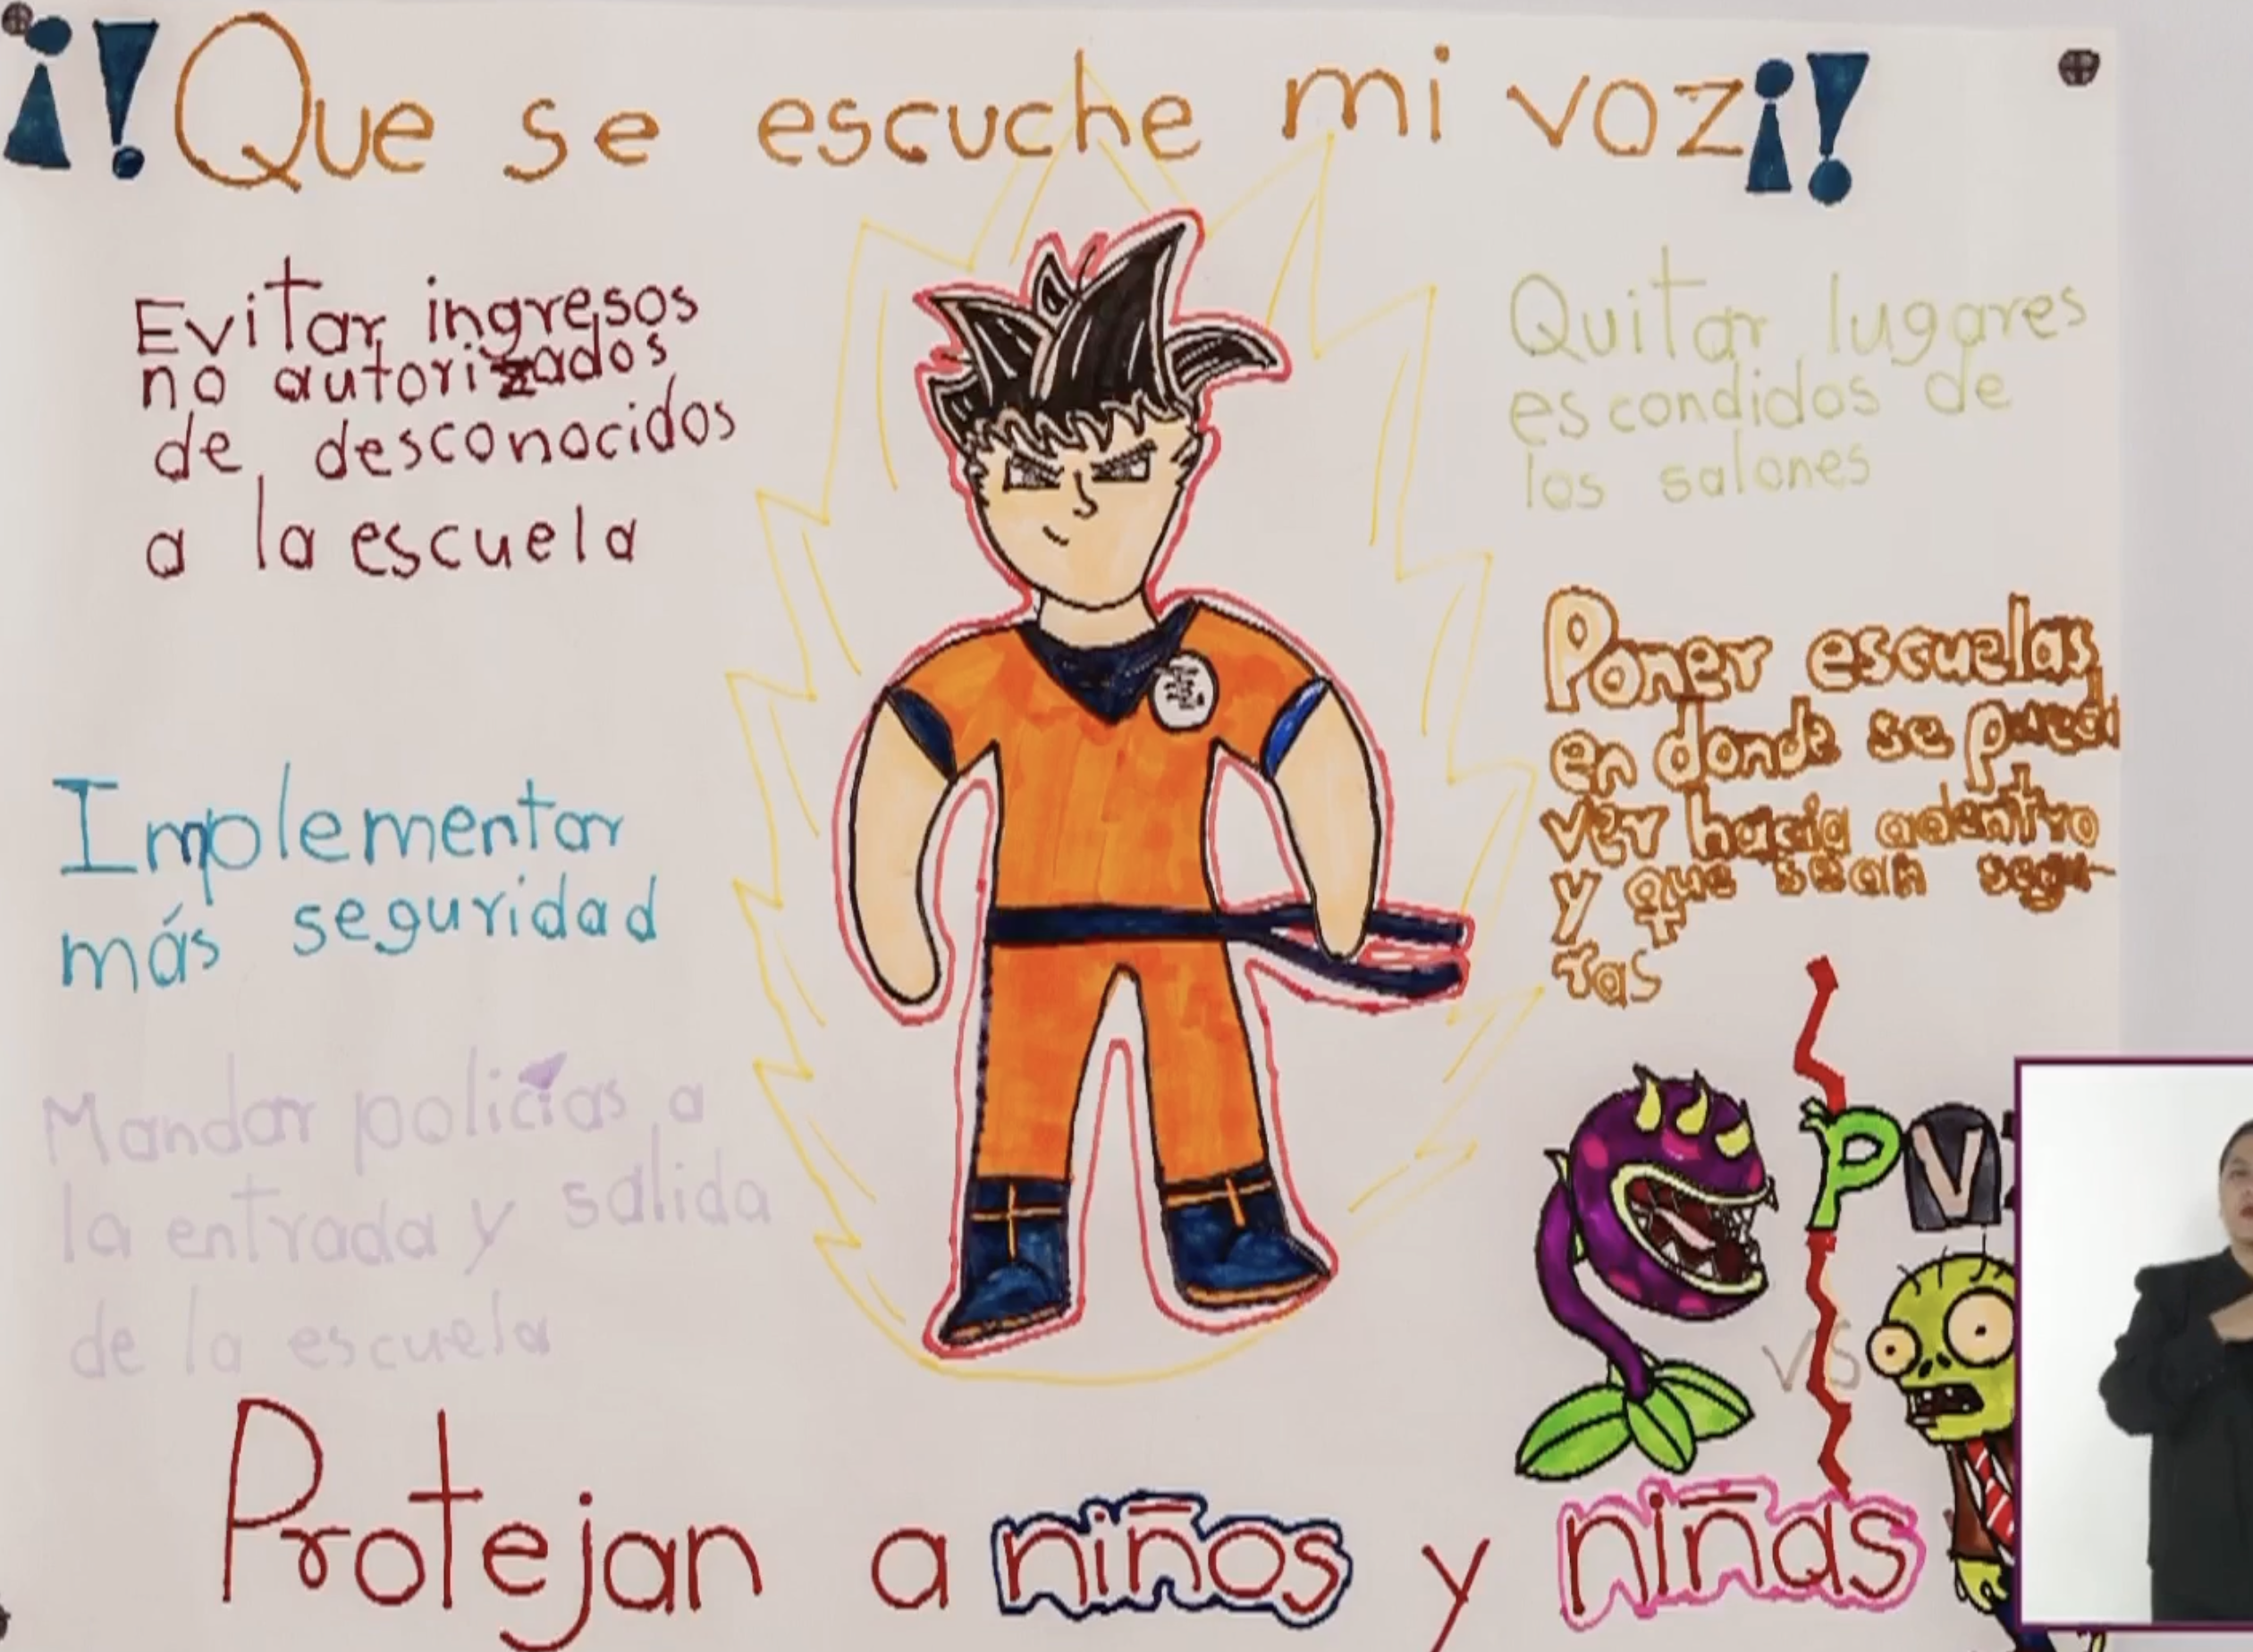 ¡!Que se escuche mi voz¡!
Evitar ingresos
no autorizados
de desconocidos
a la escuela
Implementar
más seguridad
Mandar policías a
la entrada y salida
de la escuela
Quitar lugares
escondidos de
los salones
Poner escuelas
en donde se pueda
ver hacia adentro
y que sean segu-
ras
PV
VS
Protejan a niños y niñas